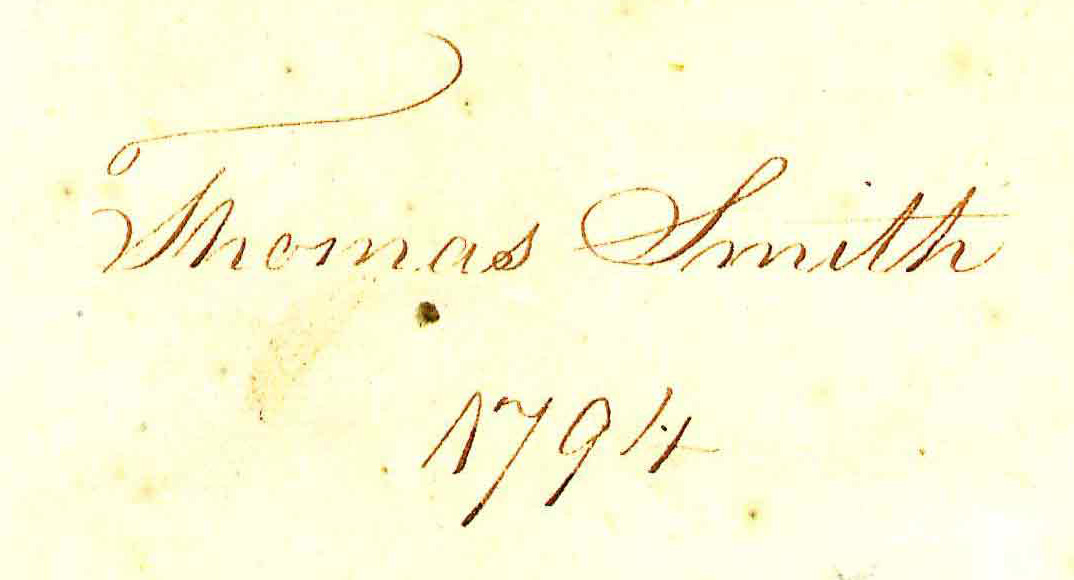 Thomas Smith
1794